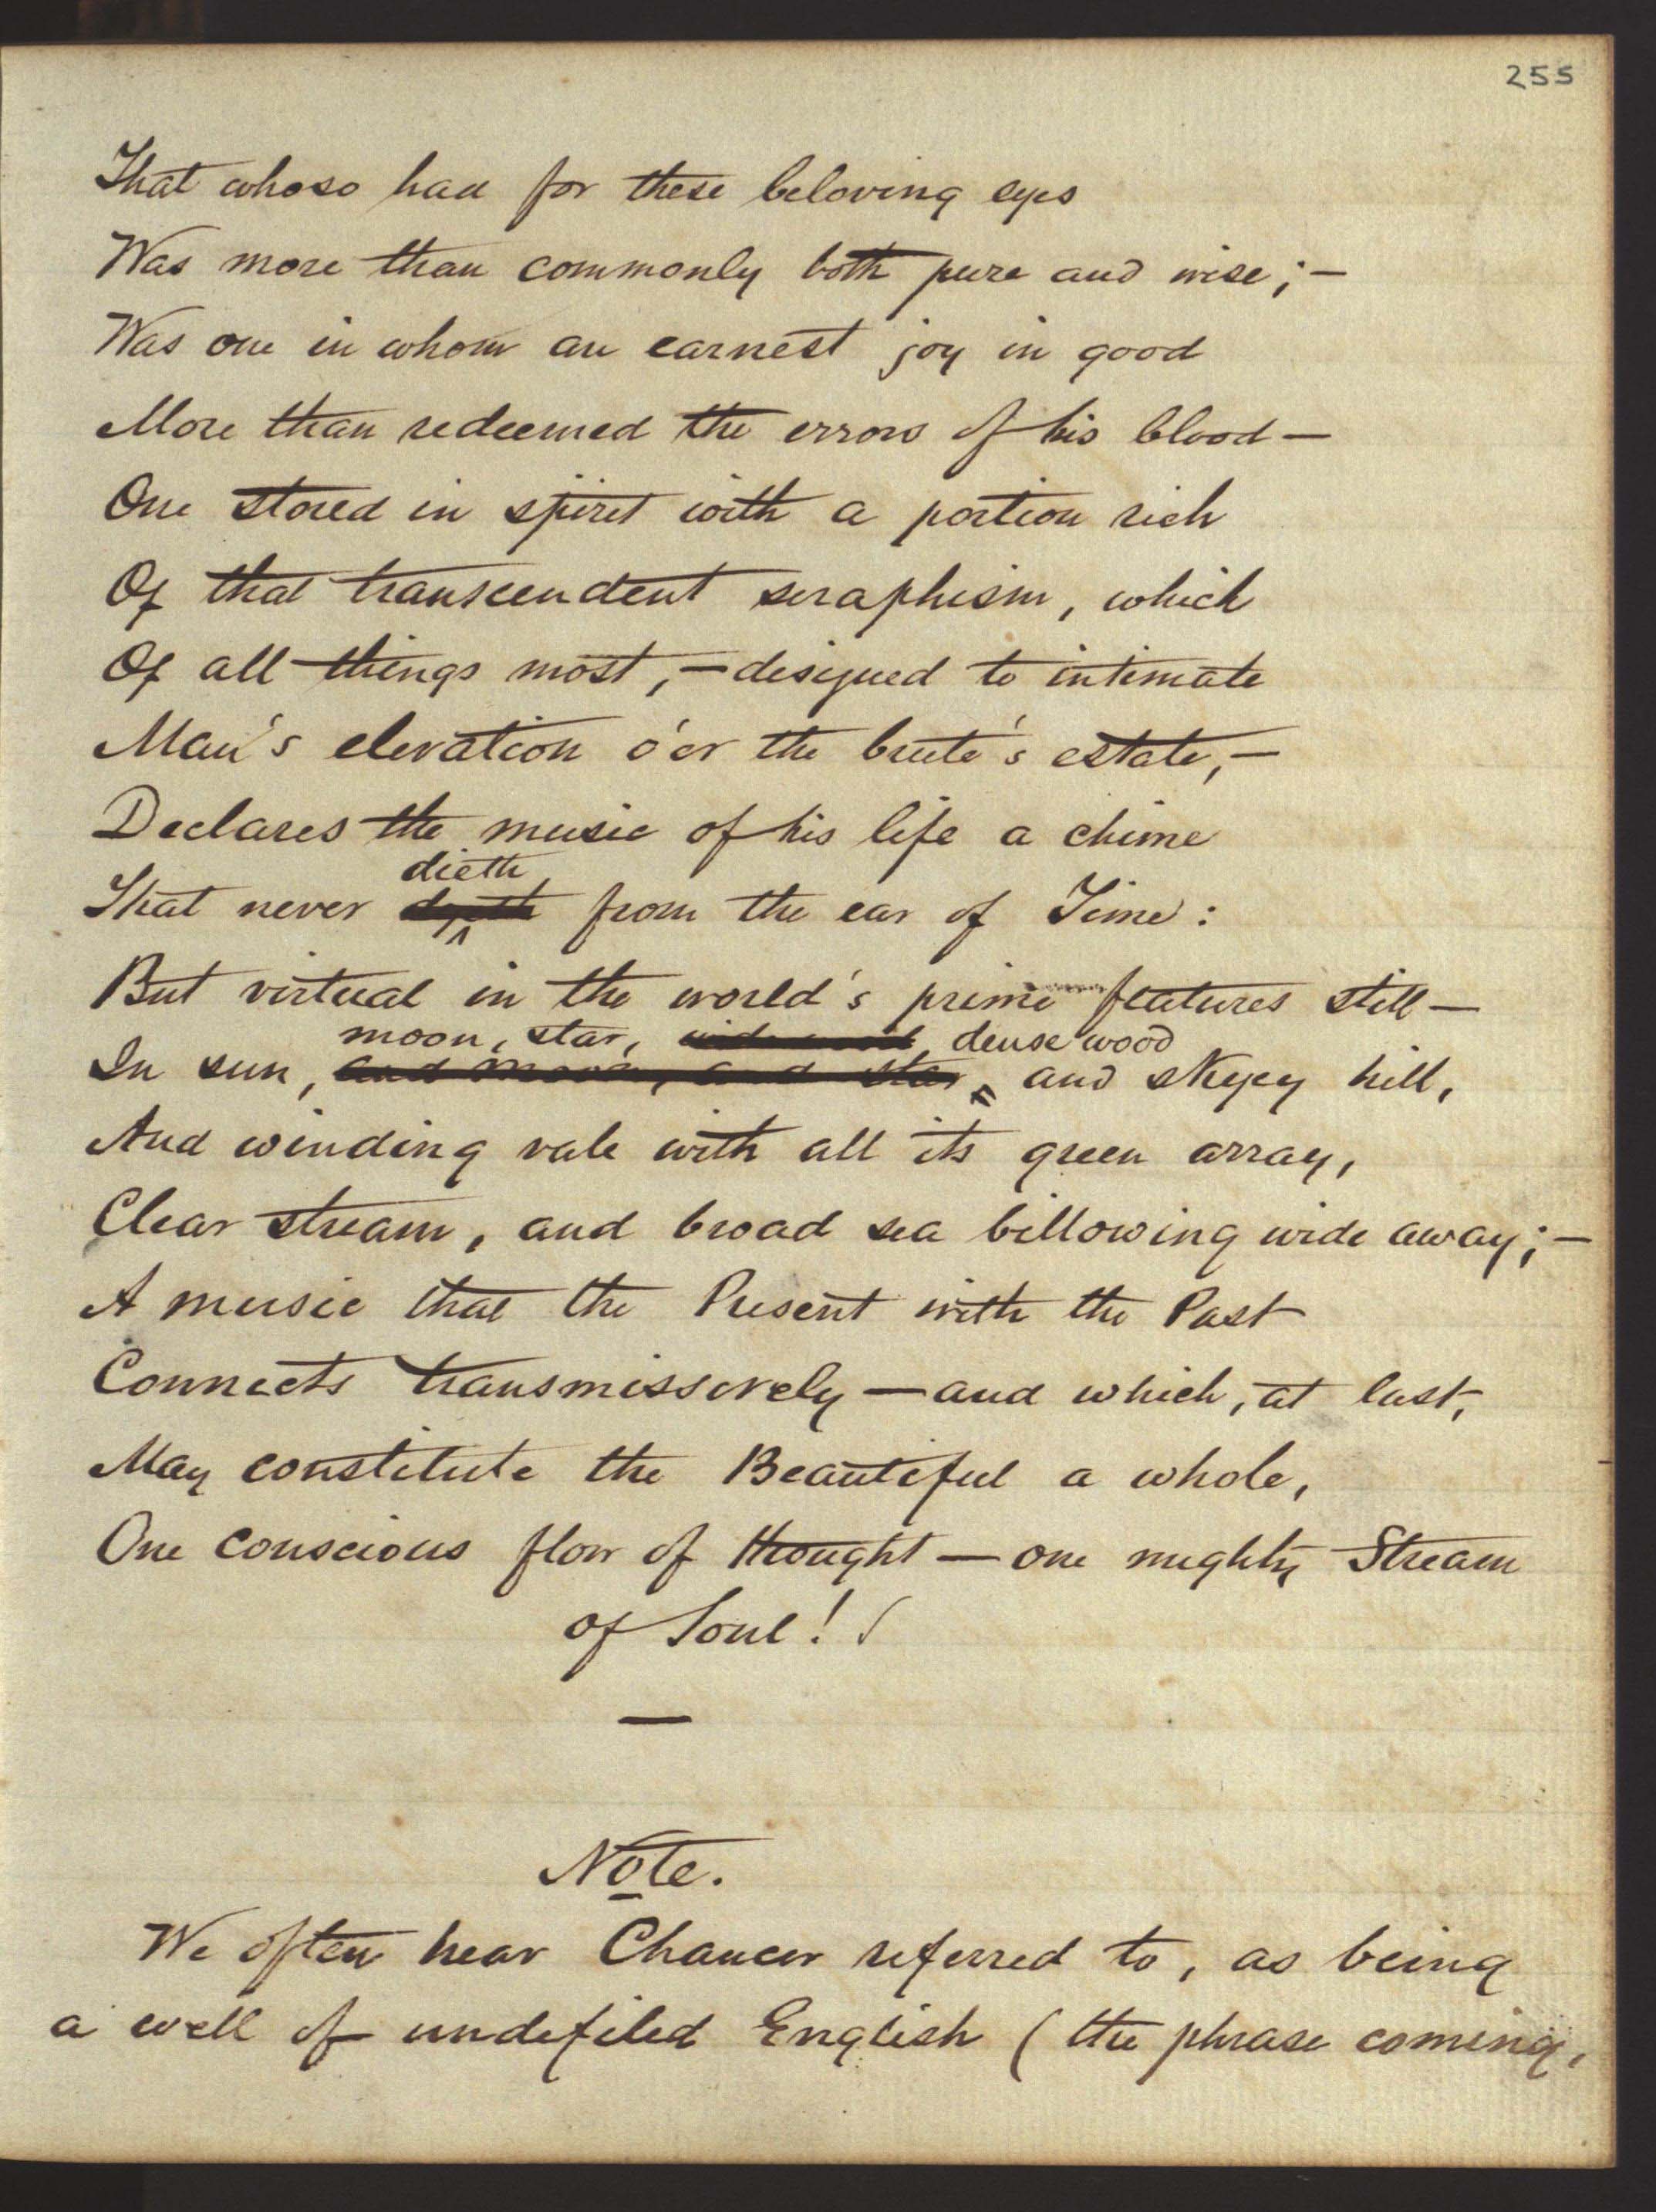 255
That whoso had for these beloving eyes
Was more than commonly both pure and wise; —
Was one in whom an earnest joy in good
More than redeemed the errors of his blood —
One stored in spirit with a portion rich
Of that transcendent seraphism, which
Of all things most, — designed to intimate
Man's elevation o'er the brute's estate, —
Declares the music of his life a chime
dieth
That never from the ear of Time:
But virtual in the world's prime features still —
moon, star, dense wood
In sun, and moon, and star, and skyey hill,
And winding vale with all its green array,
Clear stream, and broad sea billowing wide away; —
A music that the Present with the Past
Connects transmissively — and which, at last,
May constitute the Beautiful a whole,
One conscious flow of thought — one mighty Stream
of Soul!
Note.
We often hear Chaucer referred to, as being
a well of undefiled English (the phrase coming,